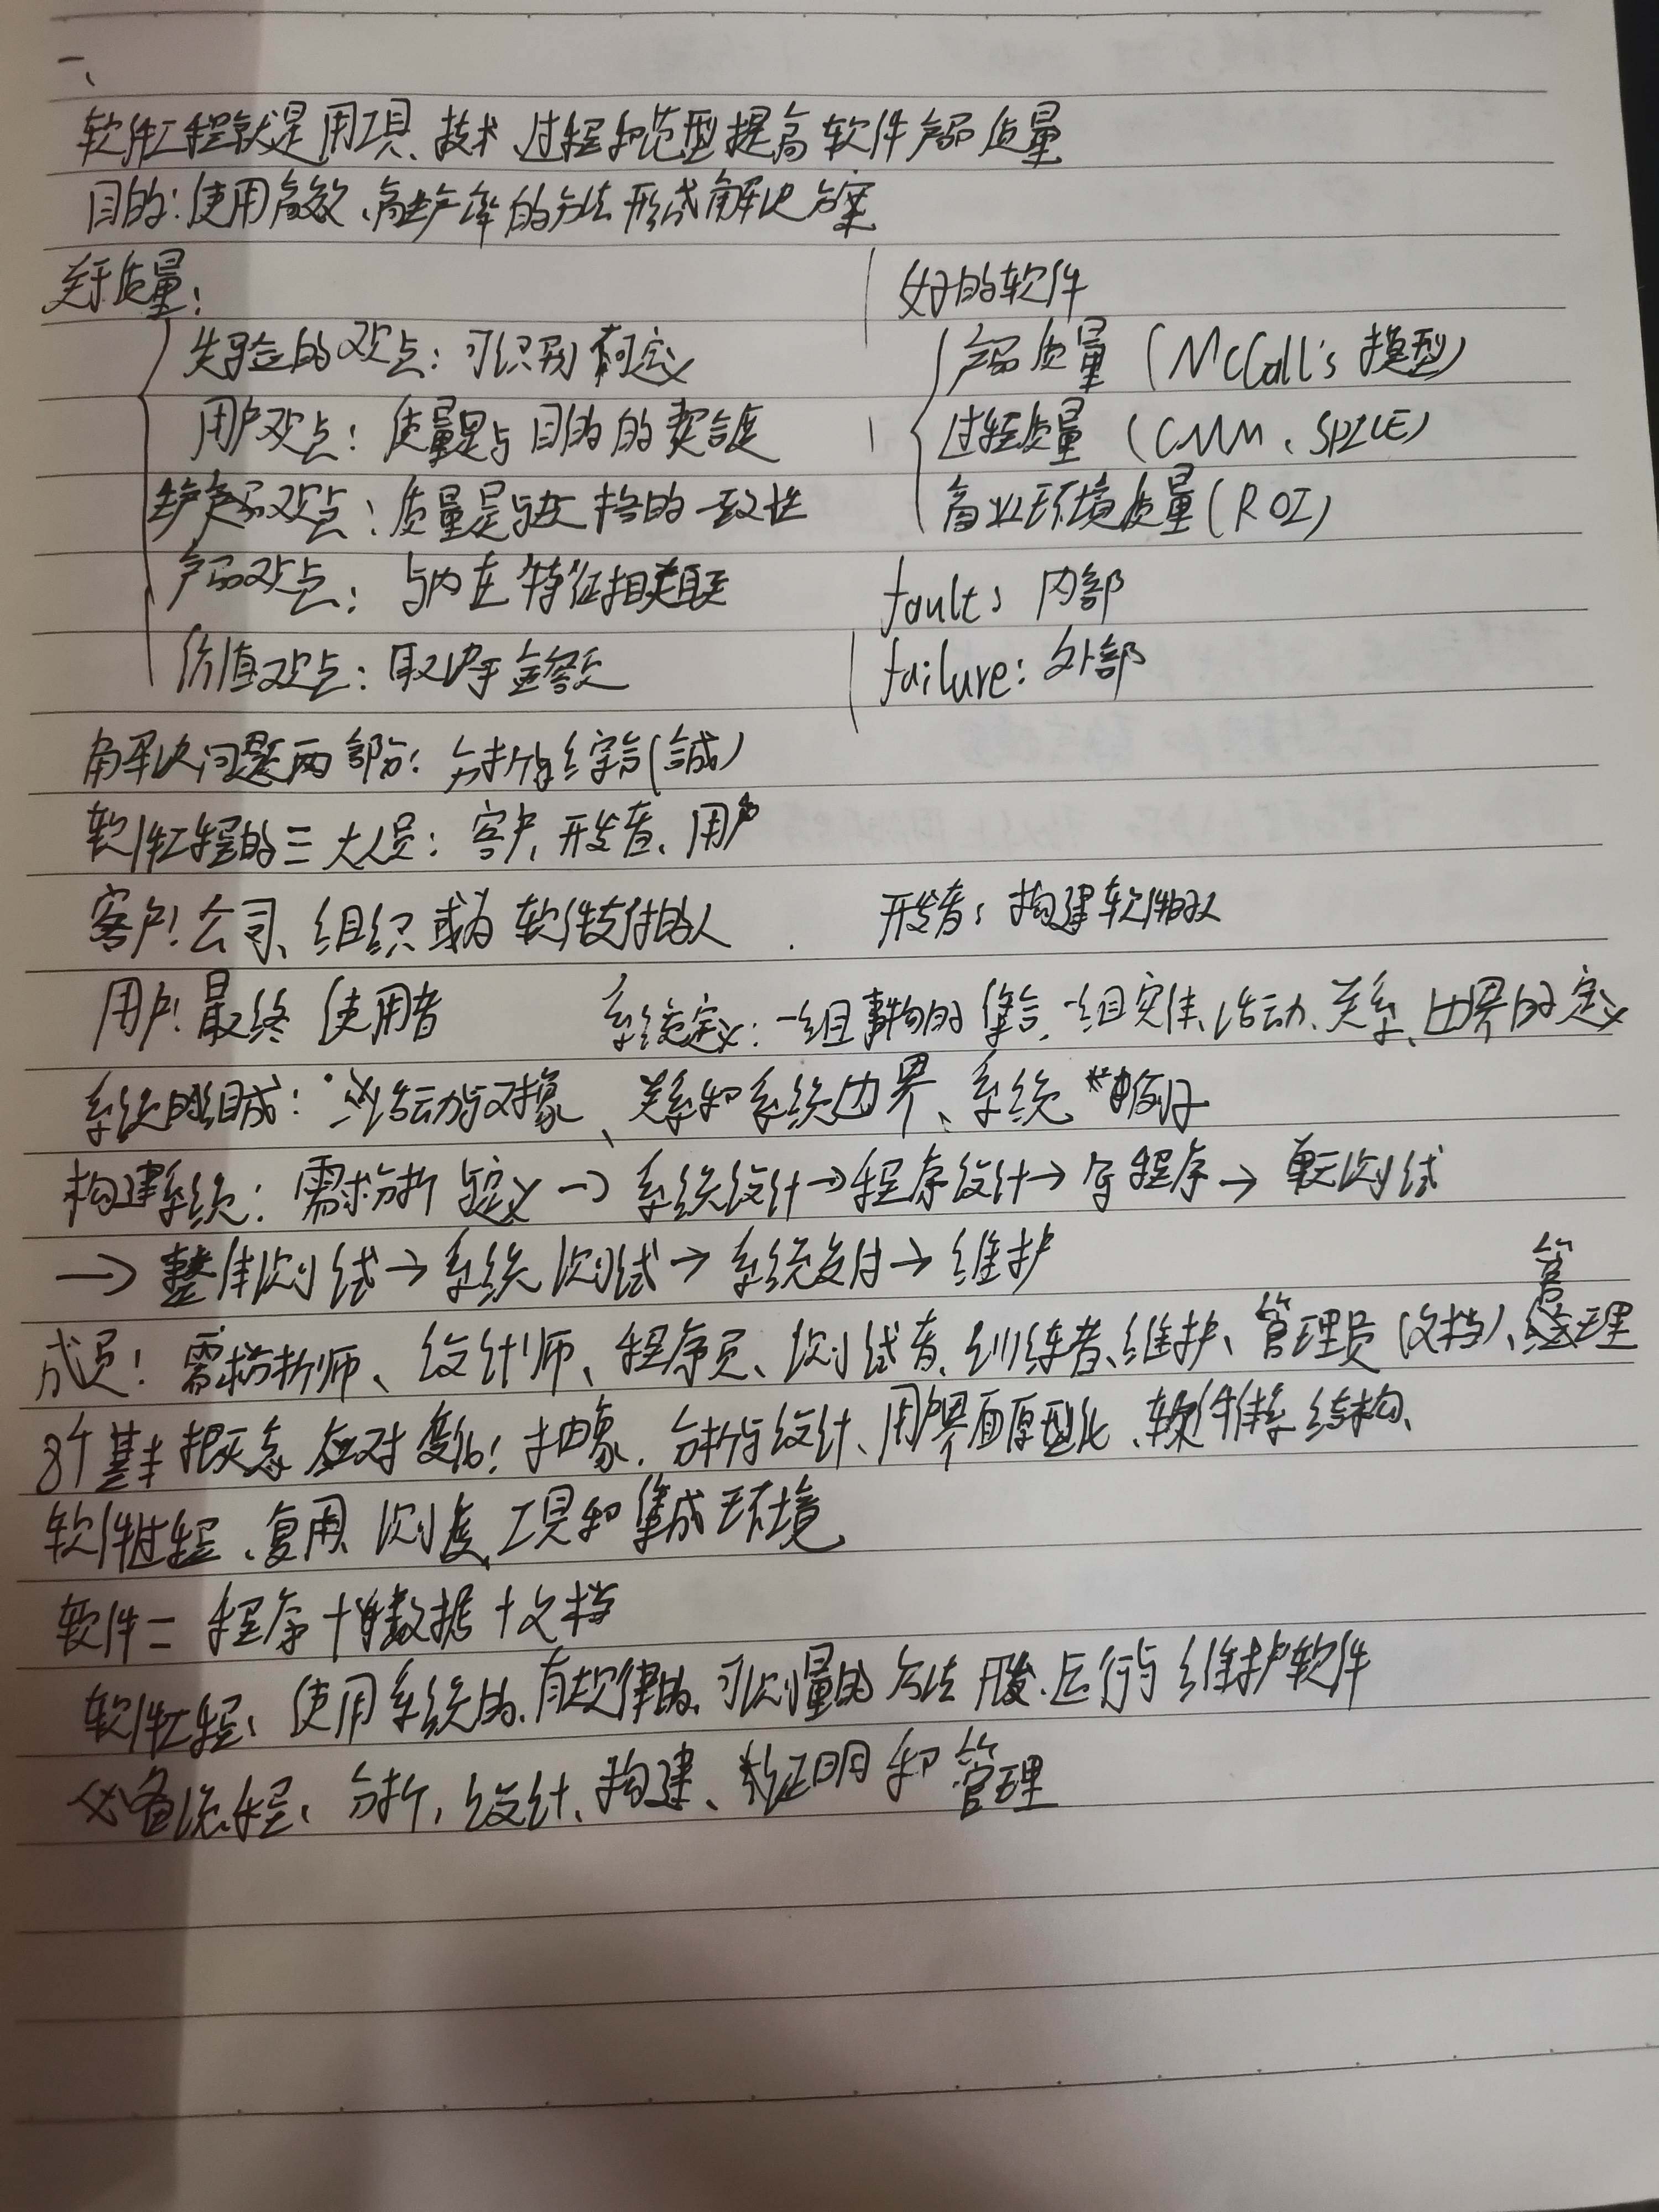 一、
软件工程就是用工具、技术、过程和范型提高软件产品质量
目的：使用高效、高生产率的方法形成解决方案
关于质量：
先验的观点：可识别 不可定义
用户观点：质量是与目的的契合度
生产观点：质量是与规格的一致性
产品观点：与内在特征相关联
价值观点：取决于金额
好的软件
产品质量（McCall's 模型）
过程质量（CMM、SPICE）
商业环境质量（ROI）
fault：内部
failure：外部
解决问题两部分：分析与综合（合成）
软件工程的三大人员：客户、开发者、用户
客户：公司、组织或为软件支付的人
开发者：构建软件的人
用户：最终使用者
系统定义：一组事物的集合，一组实体、活动、关系、边界的定义
系统的组成：活动与对象、关系和系统边界、系统 例子
构建系统：需求分析 定义→系统设计→程序设计→写程序→单元测试
→整体测试→系统测试→系统交付→维护
成员：需求分析师、设计师、程序员、测试者、训练者、维护、管理员（文档）、管理
8个基本概念 应对变化：抽象、分析与设计、用户界面原型化、软件体系结构、
软件过程、复用、测度、工具和集成环境
软件＝程序＋数据＋文档
软件工程：使用系统的、有规律的、可测量的方法开发、运行与维护软件
必备流程：分析、设计、构建、证明和管理